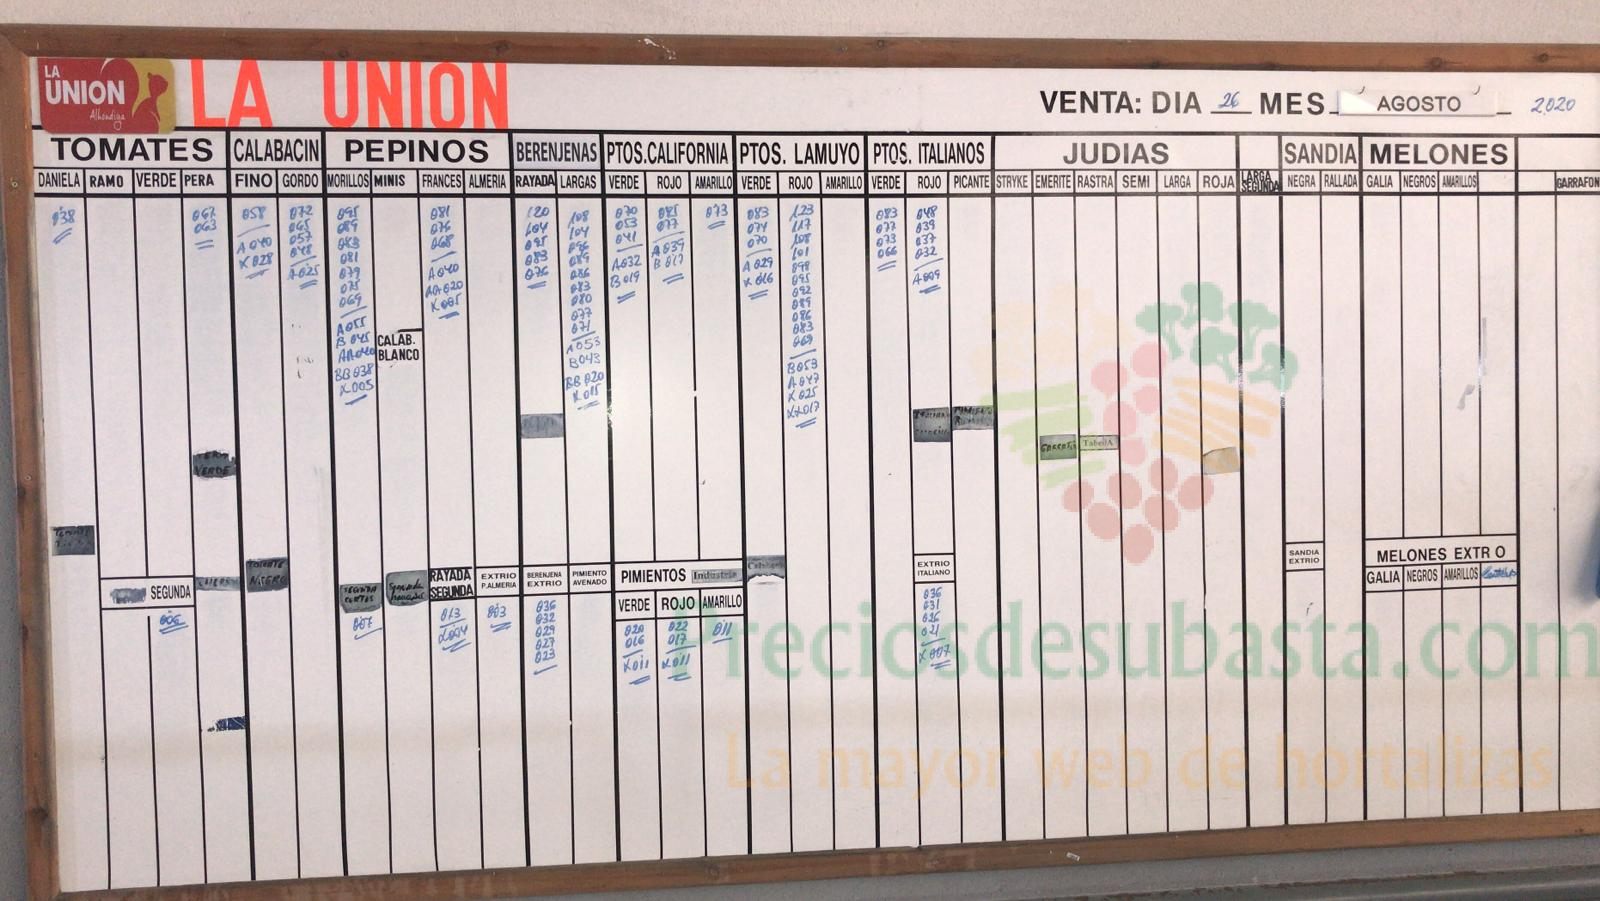 LA UNION Alhóndiga
LA UNION
VENTA: DIA 26 MES AGOSTO 2020
TOMATES CALABACIN PEPINOS BERENJENAS PTOS.CALIFORNIA PTOS. LAMUYO PTOS. ITALIANOS JUDIAS SANDIA MELONES
DANIELA RAMO VERDE PERA FINO GORDO MORILLOS MINIS FRANCES ALMERIA RAYADA LARGAS VERDE ROJO AMARILLO VERDE ROJO AMARILLO VERDE ROJO PICANTE STRYKE EMERITE RASTRA SEMI LARGA ROJA LARGA SEGUNDA NEGRA RALLADA GALIA NEGROS AMARILLOS GARRAFON
038
067
063
058
A040
X028
072
065
057
048
A025
095
089
083
081
079
075
069
A055
B045
AA040
BB038
X005
CALAB.
BLANCO
081
076
068
A040
AA020
X005
120
104
095
083
076
108
104
096
089
086
083
080
077
071
A053
B043
BB020
X015
070
053
041
A032
B019
085
077
A039
B017
073
083
074
070
A029
X016
123
117
108
101
098
095
092
089
086
083
069
B053
A047
X025
XX017
083
077
073
066
048
039
037
032
A009
TabellA
VERDE
SEGUNDA
006
SEGUNDA
CORTOS
007
RAYADA
SEGUNDA
013
X004
EXTRIO
P.ALMERIA
003
BERENJENA
EXTRIO
036
032
029
027
023
PIMIENTO
AVENADO
PIMIENTOS Industria
VERDE ROJO AMARILLO
020
016
X011
022
017
X011
011
EXTRIO
ITALIANO
036
031
026
021
X007
SANDIA
EXTRIO
MELONES EXTRIO
GALIA NEGROS AMARILLOS
Preciosdesubasta.com
La mayor web de hortalizas